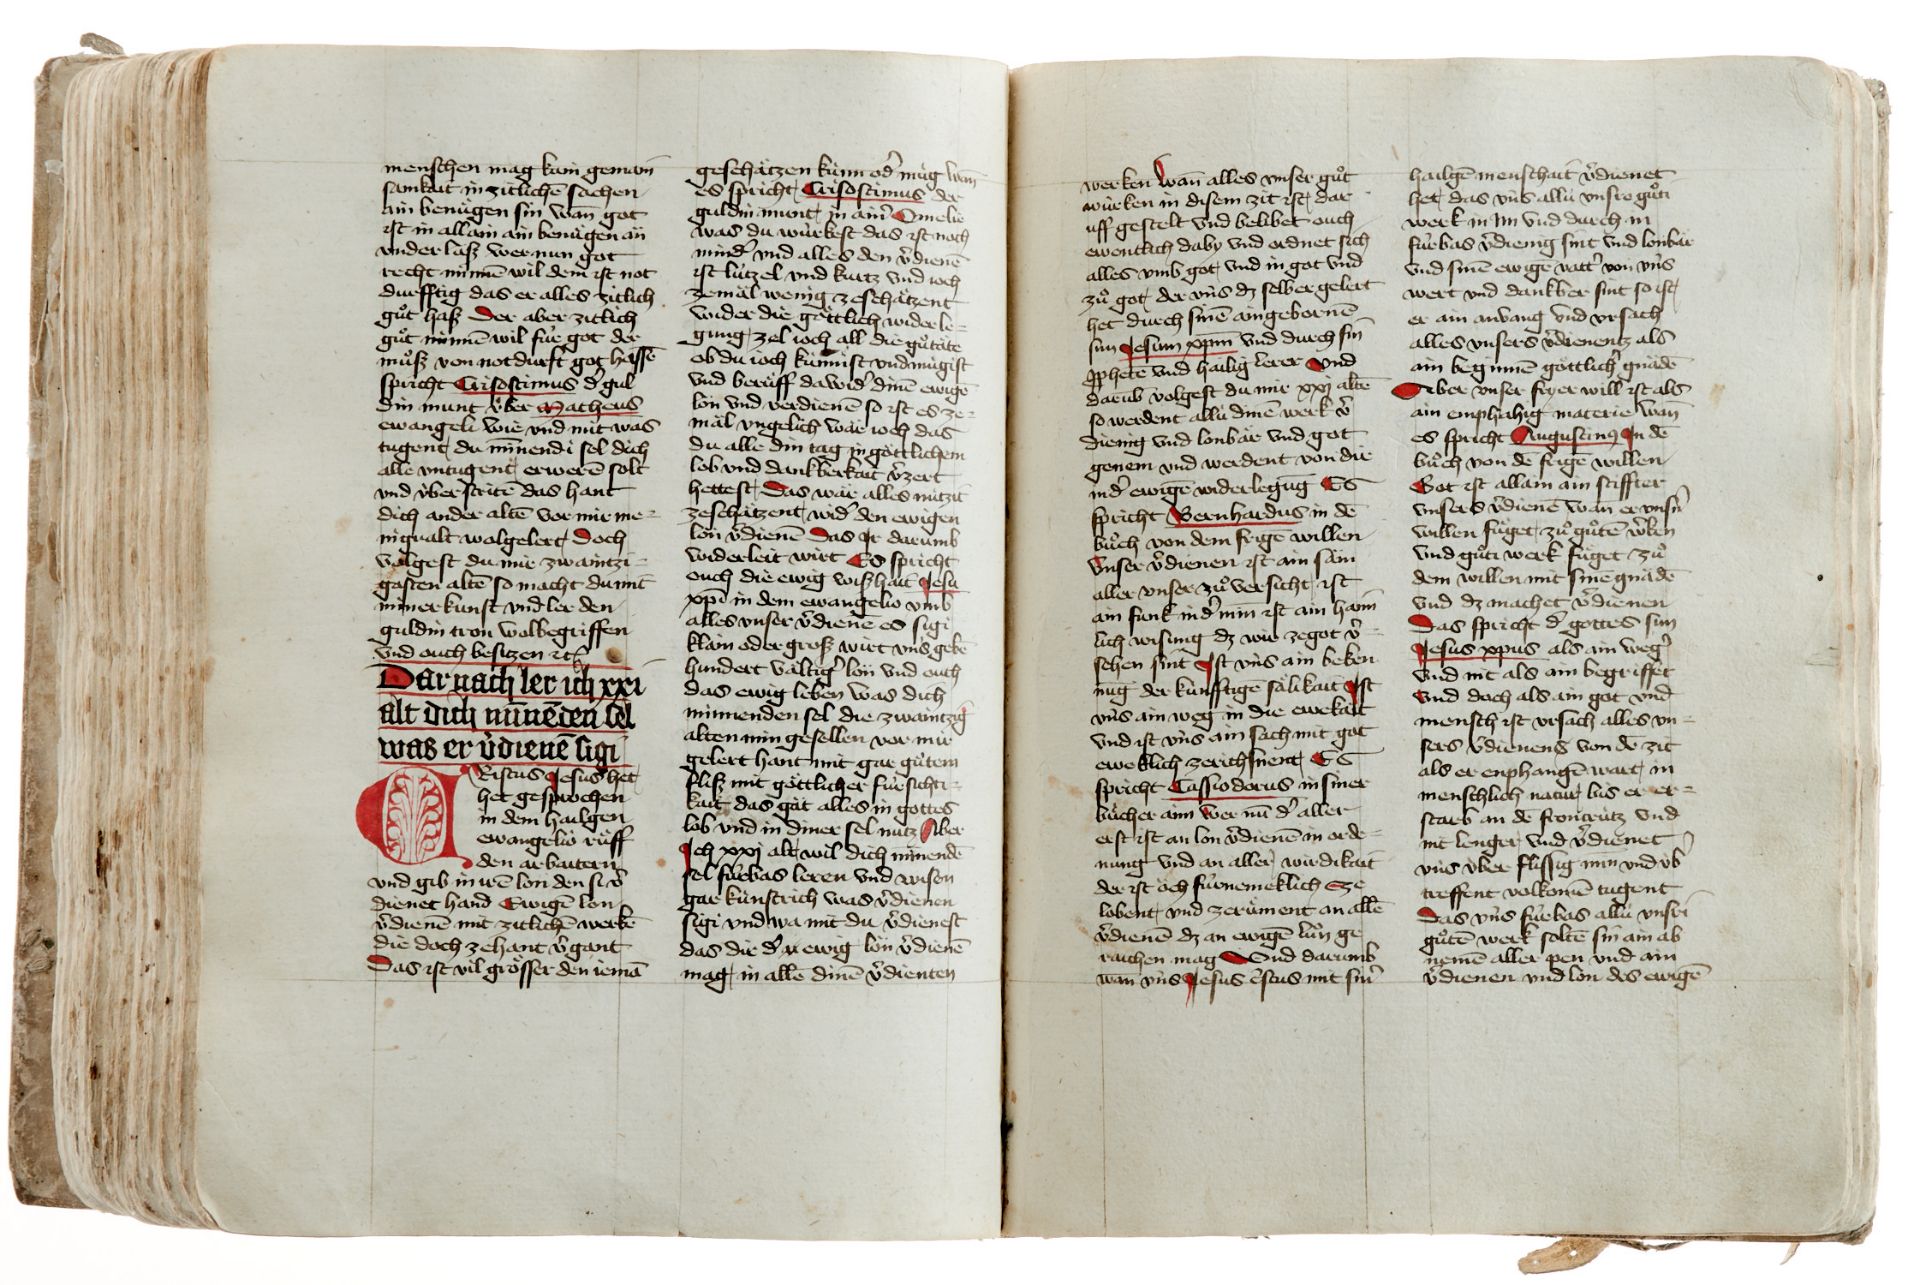 menschen mag kain gemain
samkait in zitlichē sachen
ain benu̇gen sin wan̄ got
ist in allain ain benu̇gen än
vnder lasz wer nun got
recht minnē wil dem ist not
durfftig das er alles zitlich
gůt hasz Der aber zitlich
gůt minnē wil fu̇r got der
můsz von notdurft got hassē
spricht Crisostimus d' gul
din munt v̇ber Matheus
ewangeli wie vnd mit was
tugent du minnendi sel dich
alle vntugent erwerē solt
vnd v̇berstritē das hant
dich ander altē vor mir me-
nigualt wol gelert Doch
volgest du mir zwaintzi-
gosten altē so macht du mit
miner kunst vnd ler den
guldin tron wol begriffen
vnd ouch besitzen ꝛc
Dar nach ler ich xxi
alt dich mīnēden sel
was er v̄dienē sigi
Cristus Jesus het
het gesprochen
in dem hailgen
ewangelio ru̇ff
den arbaitern
vnd gib in irē lon den si v̄
dienet hand Ewigē lon
v̄dienē mit zitlichē werkē
die doch zehant v̄gant
Das ist vil grösser den iemā
geschätzen ku̇nn od' mu̇g wan̄
es spricht Crisostimus der
guldin munt in ain' Omelie
was du wu̇rkest das ist noch
mind' vnd alles den v̄dienē
ist lu̇tzel vnd kurtz vnd ioch
zemäl wenig ze schätzent
wider die göttlich widerle-
gung zel ioch all die gu̇täte
ob du ioch ku̇nnist vnd mu̇gist
vnd beru̇ff da wid' dinē ewigē
lön vnd verdienē so ist es ze-
mäl vngelich wär ioch das
du alle din tag in göttlichem
lob vnd dankberkait v̄zert
hettest Das wär alles nu̇tzit
ze schätzent wid' den ewigen
lön v̄dienē Das Ir darumb
widerleit wirt Es spricht
ouch die ewig wiszhait Jesu
xp̄i in dem ewangelio vmb
alles vnser v̄dienē es sigi
klain oder grosz wirt vns gebē
hundert vältig' lön vnd ouch
das ewig leben Was dich
minnenden sel die zwaintzig
alten min gesellen vor mir
gelert hant mit gar gu̇tem
flisz mit göttlicher fu̇rsichti-
kait das gät alles in gottes
lob vnd in diner sel nutz Aber
Ich xxj alt wil dich minnendē
sel fu̇rbas leren vnd wisen
gar ku̇nstrich was v̄dienen
sigi vnd wa mit du v̄dienest
das die d' ewig lön v̄dienē
mag in allē dinē v̄dienten
werken Wan̄ alles vnser gůt
wu̇rken in disem zit ist dar
uff gestelt vnd belibet ouch
ewentlich daby vnd ordnet sich
alles vmb got vnd in got vnd
zů got der vns dz selber gelert
het durch sinē aingebornē
sun Jesum xp̄m vnd durch sin
p̄phetē vnd hailig lerer Vnd
darūb volgest du mir xxj altē
so werdent allu̇ dinē werk v̄
dienig vnd lonbär vnd got
genem vnd werdent von die
in d' ewigē widerlegūg Es
spricht Bernhardus in dē
bůch von dem frigē willen
Vnser v̄dienen ist ain sām
aller vnser zůversicht ist
ain funk in d' min ist ain haim
lich wisung dz wir ze got v̄-
sehen sint Ist vns ain beken
nūg der ku̇nfftigē sälikait Ist
vns ain weg in die ewekait
vnd ist vns ain sach mit got
eweklich ze richsnent Es
spricht Cassiodorus in siner
bücher aim Wer nū d' aller
erst ist an lon v̄dienē in orde-
nung vnd an aller wirdikait
der ist öch fu̇rnemeklich ze
lobent vnd zeru̇ment an allē
v̄dienē dz an ewigē lön ge
raichen mag Vnd darumb
wan̄ vns Jesus c̄stus mit sin'
hailgē menschait v̄dienet
het das vns allu̇ vnsru gůti
werk in Im vnd durch in
fu̇rbas v̄dienig sint vnd lonbär
vnd sinē ewigē vatt' von vns
wert vnd dankber sint so ist
er ain anvang vnd vrsach
alles vnsers v̄dienentz als
ain beginnē göttlich' gnādē
Aber vnser fryer will ist als
ain emphahig materie Wan̄
es spricht Augustinus In dē
bůch von dē frigē willen
Got ist allain ain stiffter
vnsers v̄dienē wan er vnsn'
willen fůget zů gůtē w̄ken
vnd gůti werk fu̇get zů
dem willen mit sinē gnādē
vnd dz machet v̄dienen
Das spricht d' gottes sun
Jesus xp̄us als ain weg'
vnd nit als ain begriffet
vnd doch als ain got vnd
mensch ist vrsach alles vn-
sers v̄dienens von dē zit
als er enphangē wart in
menschlich natur bis er er-
starb an dē froncru̇tz vnd
nit lenger vnd v̄dienet
vns v̇ber flissig min vnd v̇b
treffent volkomē tugent
Das vns fu̇rbas allu̇ vnsri
gůtē werk soltē sin ain ab
nemē aller pen vnd ain
v̄dienen vnd lon des ewigē